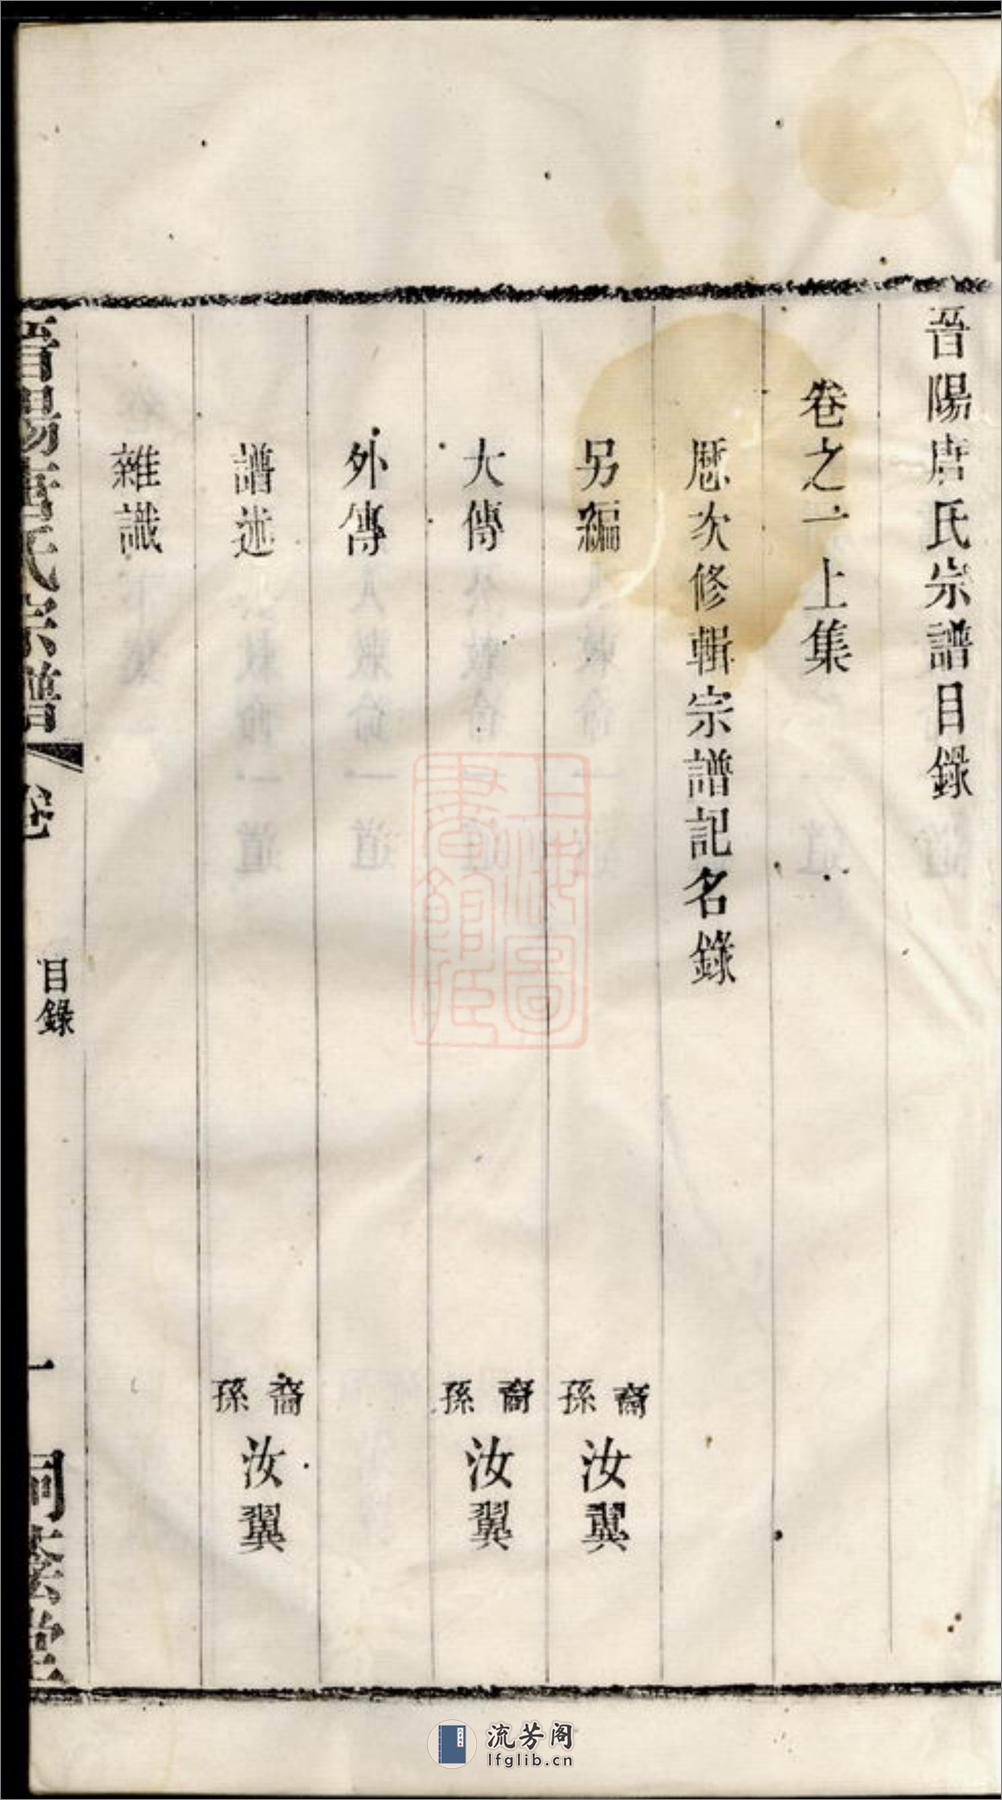 晉陽唐氏宗譜目錄
卷之一上集
歷次修輯宗譜記名錄
另編 裔孫汝翼
大傳 裔孫汝翼
外傳
譜述 裔孫汝翼
雜識
晉陽唐氏宗譜 卷 目錄 一
上海圖書館藏
流芳阁
lfglib.cn